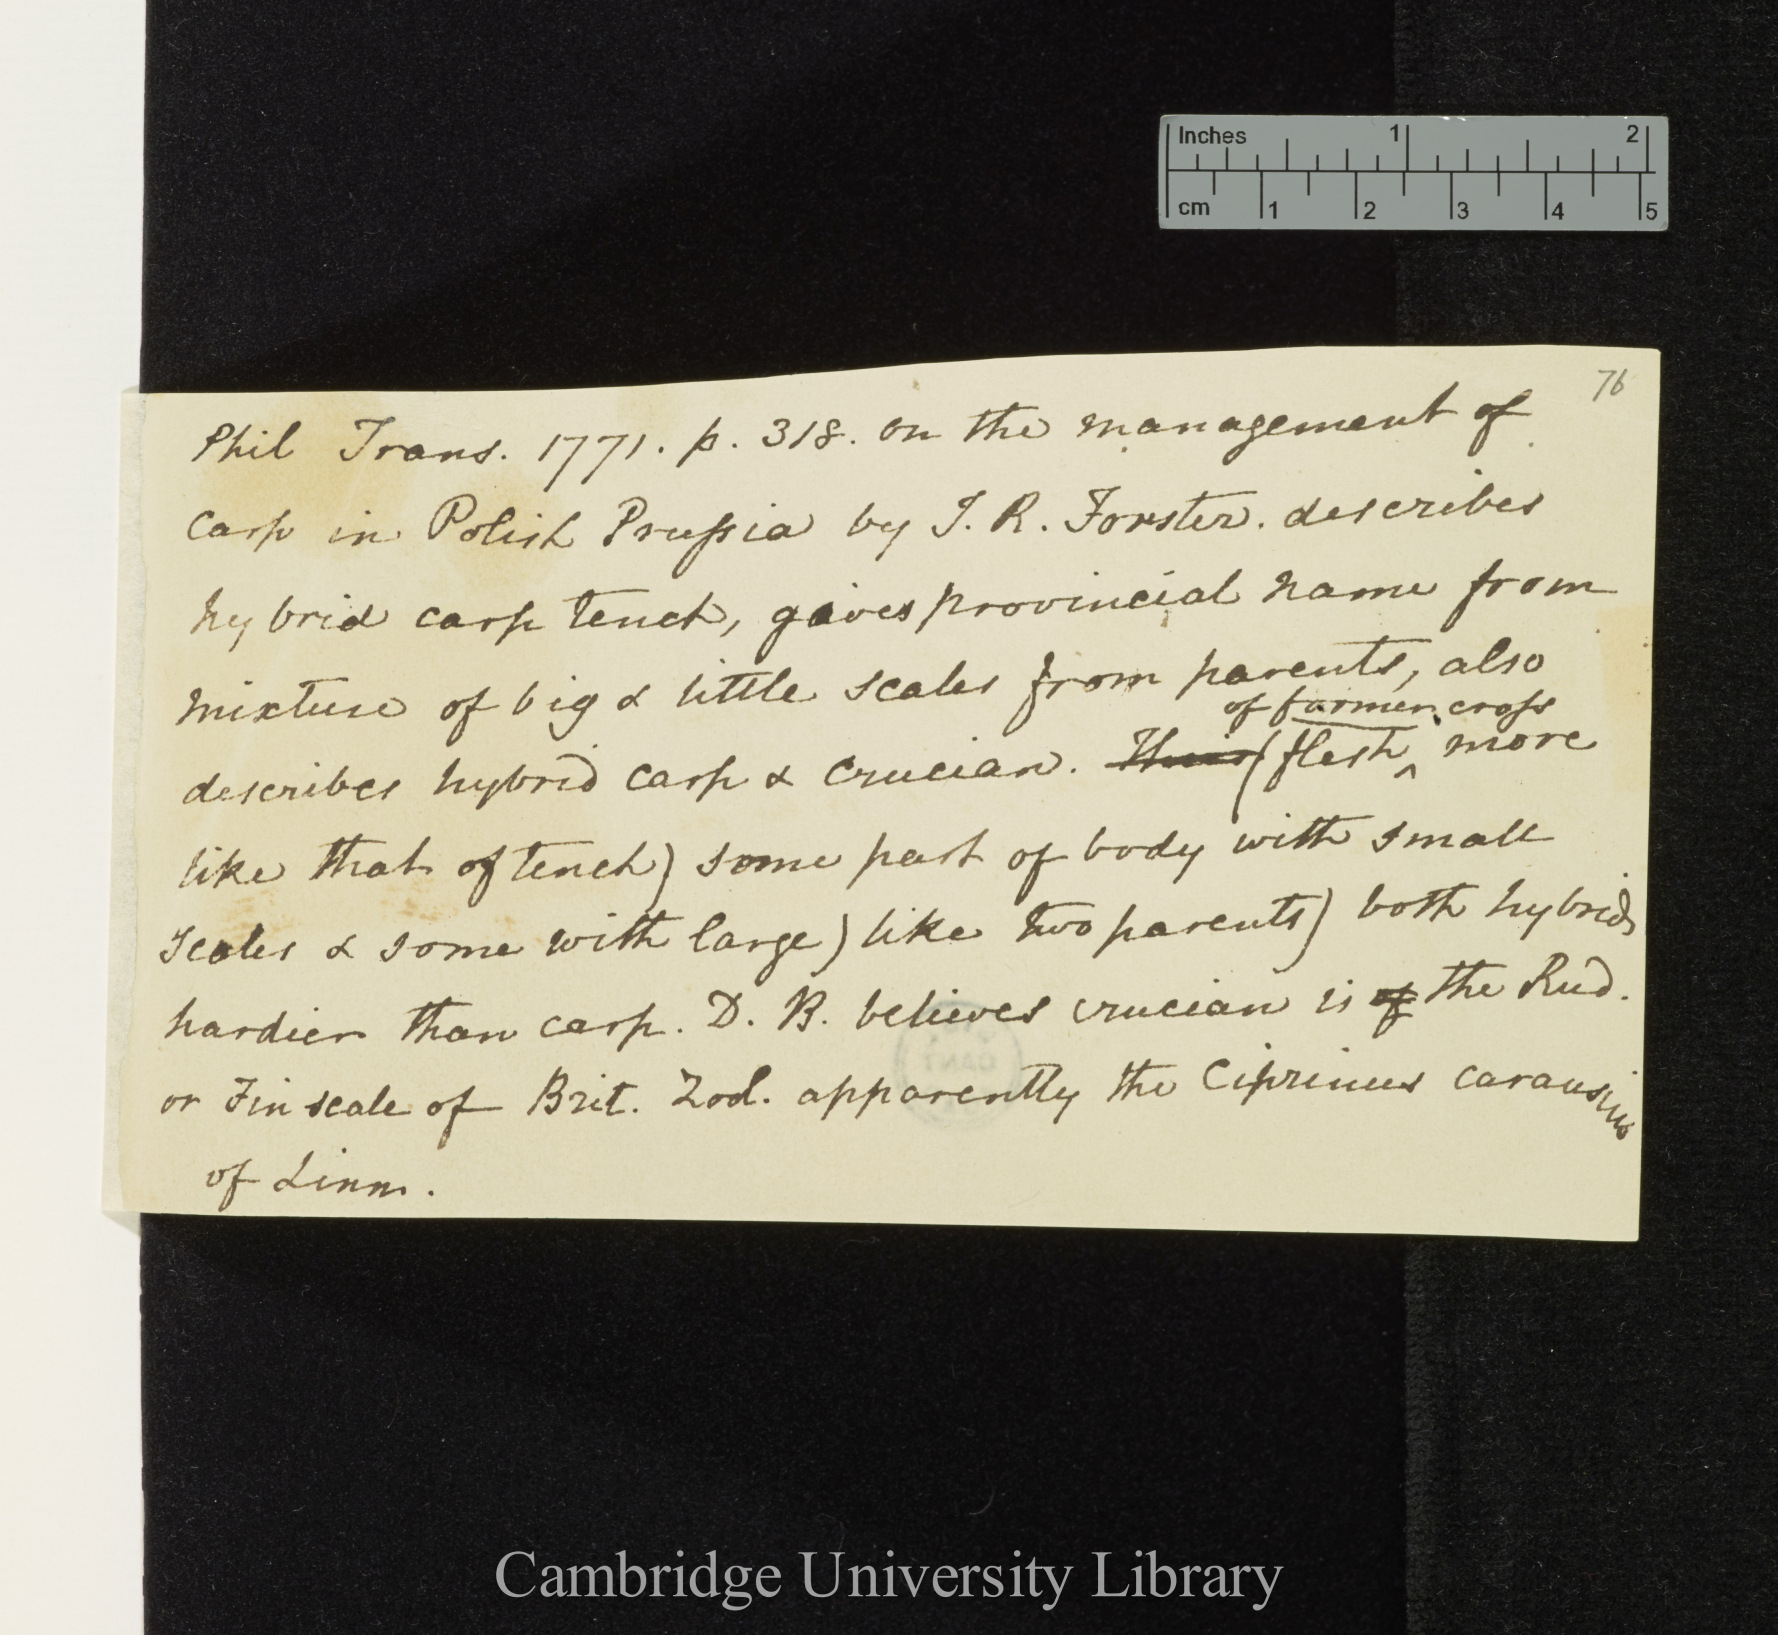 Inches 1 2
cm 1 2 3 4 5
76
Phil Trans. 1771. p. 318. on the management of
carp in Polish Prussia by J. R. Forster. describes
hybrid carp tench, gives provincial name from
mixture of big & little scales from parents, also
of former cross
describes hybrid carp & crucian. Their (flesh ^ more
like that of tench) some part of body with small
scales & some with large) like two parents) both hybrids
hardier than carp. D. B. believes crucian is of the Rud.
or Finscale of Brit. Zool. apparently the Ciprinus carausius
of Linn.
Cambridge University Library